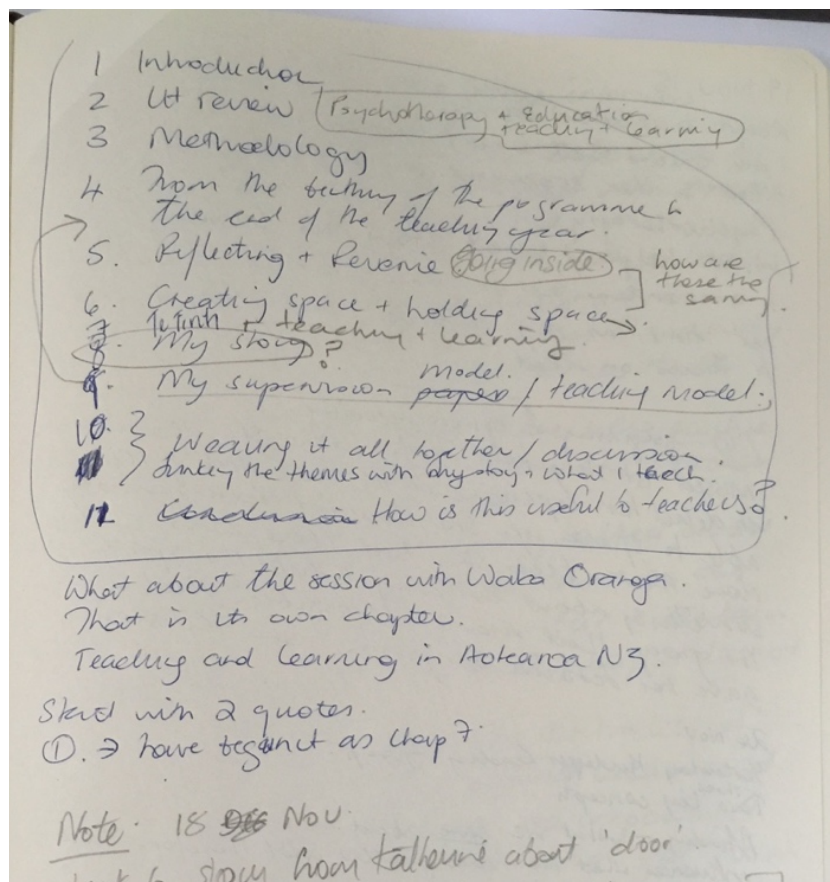 1 Introduction
2 Lit review Psychotherapy + Education
teaching + learning
3 Methodology
4 From the of the programme to
the end of the teaching year.
5. Reflecting + Reverie Going inside how are
these the
same
6. Creating space + holding space
7 + teaching + learning
8. My story?
9. My supervision model.
papers / teaching model.
10. Weaving it all together / discussion.
the themes with my story + what I teach.
12 Conclusion How is this useful to teachers?
What about the session with Waka Oranga.
That is its own chapter.
Teaching and Learning in Aotearoa NZ.
Start with 2 quotes.
①. → have as chap 7.
Note. 18 Nov.
story from Katherine about 'door'